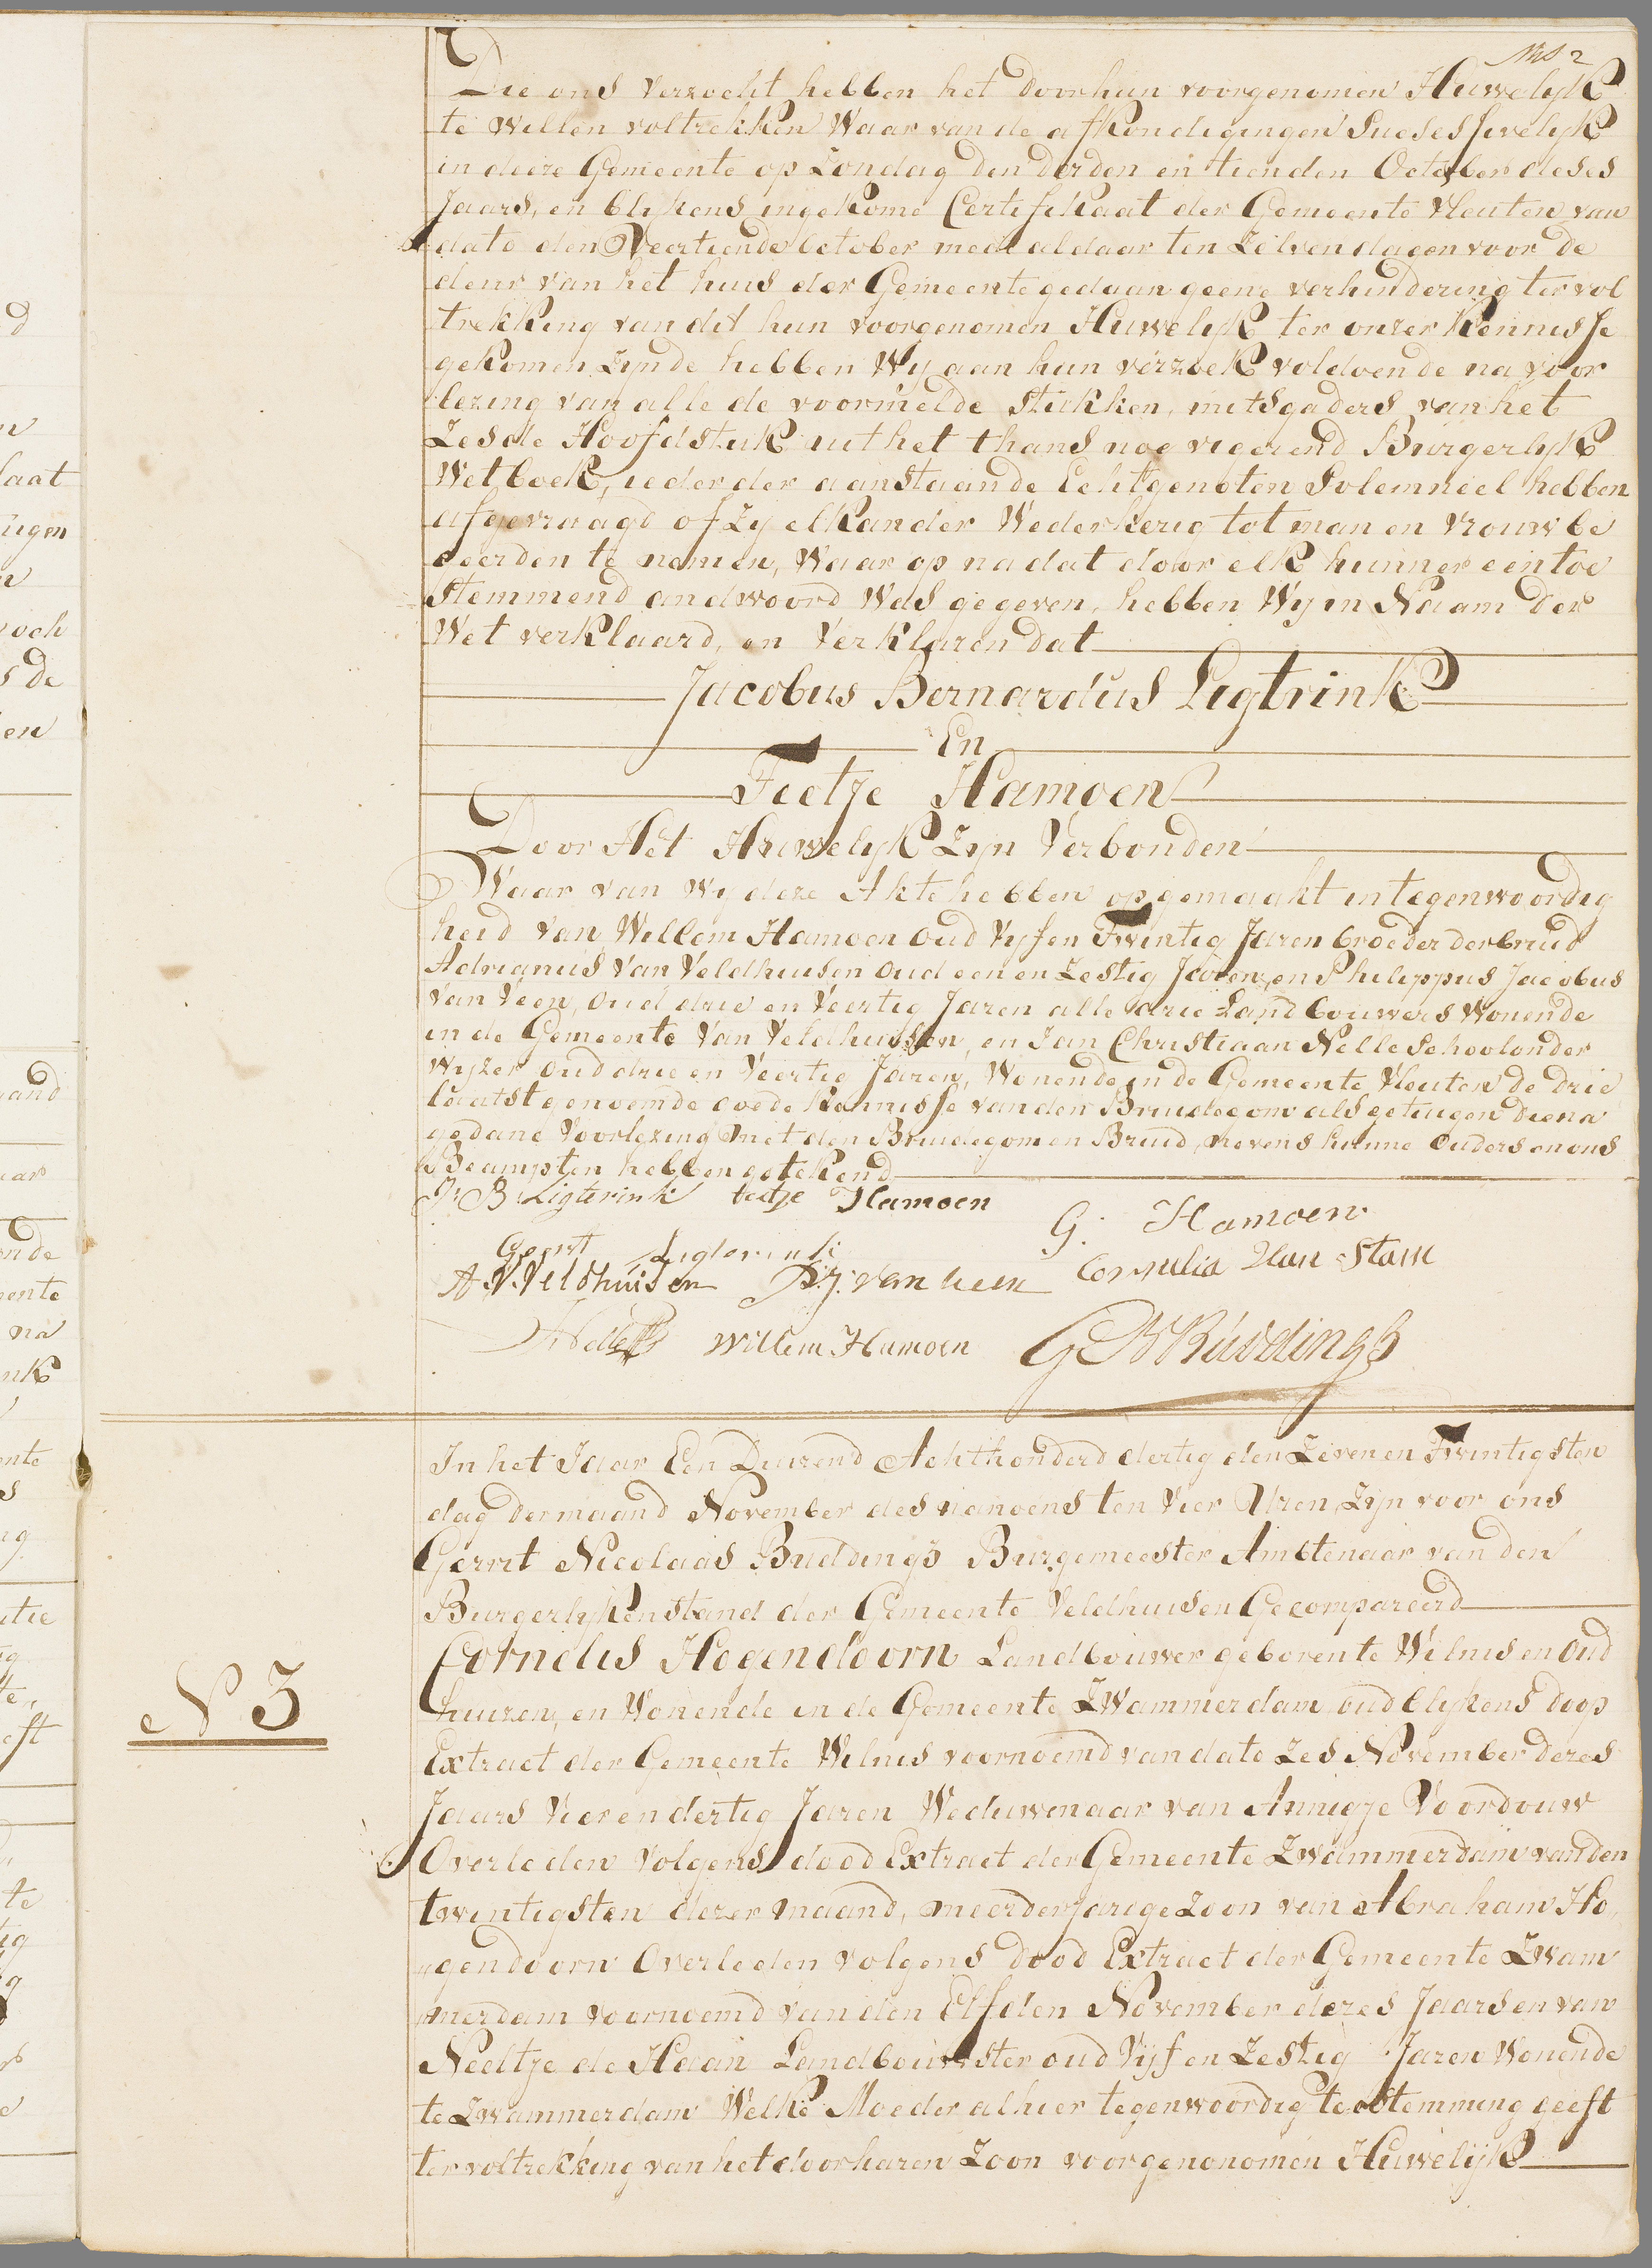 Die ons verzocht hebben het door hun voorgenomen Huwelyk
te willen voltrekken Waar van de afkondigingen Sucsesfivelyk
in deeze Gemeente op Zondag den derden en tienden October deses
Jaars, en blykens ingekome Certifikaat der Gemeente Vleuten van
dato den Veertiende October mede aldaar ten Zelven dagen voor de
deur van het huis der Gemeente gedaan geene verhindering ter vol
trekking van dit hun voorgenomen Huwelyk ter onzer Kennisse
gekomen Zynde hebben Wy aan hun verzoek voldoende na voor
lezing van alle de voormelde Stukken, mitsgaders van het
Zesde Hoofdstuk uit het thans nog vigeerend Burgerlyk
Wetboek, ieder der aanstaande Echtgenoten Solemneel hebben
afgevraagd of Zy elkander Wederkerig tot man en vrouw be
geerden te nemen, Waar op nadat door elk hunner een toe
Stemmend andwoord Was gegeven, hebben Wy in Naam der
Wet verklaard, en Verklaren dat
Jacobus Bernardus Ligtrink
En
Teetje Hamoen
Door Het Huwelyk Zyn Verbonden
Waar van wy deze Akte hebben opgemaakt in tegenwoordig
heid van Willem Hamoen oud Vyf en Twintig Jaren broeder der bruid
Adrianus Van Veldhuisen oud een en Zestig Jaren, en Philippus Jacobus
van Veen, oud drie en Veertig Jaren alle drie Landbouwers Wonende
in de Gemeente Van Veldhuisen, en Jan Christiaan Nelle Schoolonder
wyzer oud drie en Veertig Jaren, Wonende in de Gemeente Vleuten de drie
laatst genoemde goede Kennisse van den Bruidegom als getuigen die na
gedane Voorlezing met den Bruidegom en Bruid, nevens hunne ouders en ons
Beampten hebben getekend
J: B: Ligterink teetje Hamoen
G. Hamoen
Geert Ligterink
A. V. Veldhuisen P. J. van Veen Cornelia Van Stam
Nelle Willem Hamoen G N Buddingh
In het Jaar Een Duizend Achthonderd dertig den Zeven en Twintigsten
dag der maand November des namoens ten Vier Uren, Zyn voor ons
Gerrit Nicolaas Buddingh Burgemeester Ambtenaar van den
Burgerlyken stand der Gemeente Veldhuisen Gecompareerd
N 3
Cornelis Hogendoorn Landbouwer geboren te Wilnis en Oud
huizen, en Wonende in de Gemeente Zwammerdam oud blykens doop
Extract der Gemeente Wilnis voornoemd van dato Zes November dezes
Jaars Vier en dertig Jaren Weduwenaar van Annigje Voordouw
Overleden Volgens dood Extract der Gemeente Zwammerdam van den
twintigsten dezer maand, meerderjarige Zoon van Abraham Ho,
gendoorn Overleden volgens dood Extract der Gemeente Zwam
merdam voornoemd van den Elfden November dezes Jaars en van
Neeltje de Haan Landbouwster oud Vyf en Zestig Jaren Wonende
te Zwammerdam Welke Moeder alhier tegenwoordig toestemming geeft
ter voltrekking van het door haren Zoon voorgenonomen Huwelijk